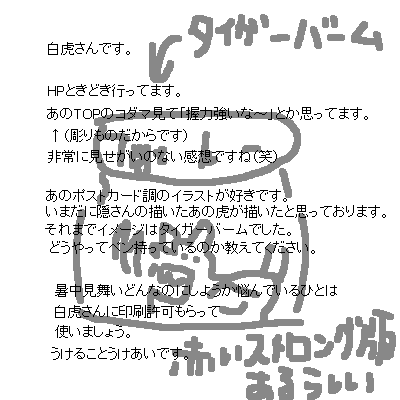 タイガーバーム
白虎さんです。
HPときどき行ってます。
あのTOPのコダマ見て「握力強いな～」とか思ってます。
↑（彫りものだからです）
非常に見せがいのない感想ですね（笑）
あのポストカード調のイラストが好きです。
いまだに隠さんの描いたあの虎が描いたと思っております。
それまでイメージはタイガーバームでした。
どうやってペン持っているのか教えてください。
暑中見舞いどんなのにしようか悩んでいるひとは
白虎さんに印刷許可もらって
使いましょう。
うけることうけあいです。
赤いストロング版
あるらしい